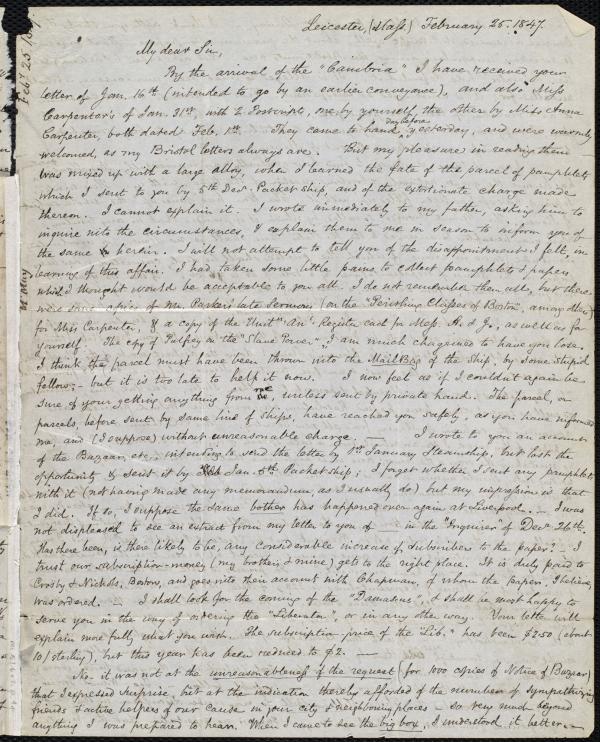 Leicester, (Mass.) February 25. 1847.
My dear Sir,
By the arrival of the "Cambria" I have received your
letter of Jan. 16th (intended to go by an earlier conveyance), and also Miss
Carpenter's of Jan. 31st, with 2 Postscripts, one by yourself, the other by Miss Anna
Carpenter, both dated Feb. 1st. They came to hand, day before yesterday, and were warmly
welcomed, as my Bristol letters always are. But my pleasure in reading them
was mixed up with a large alloy, when I learned the fate of the parcel of pamphlets
which I sent to you by 5th Decr. Packet ship, and of the extortionate charge made
thereon. I cannot explain it. I wrote immediately to my father, asking him to
inquire into the circumstances, & explain them to me in season to inform you of
the same herein. I will not attempt to tell you of the disappointment I felt, in
learning of this affair. I had taken some little pains to collect pamphlets & papers
which I thought would be acceptable to you all. I do not remember them all, but there
were copies of Mr. Parker's late Sermons (on the "Perishing Classes of Boston", among others)
for Miss Carpenter, & a copy of the Unitn. Anl. Register each for Mess. H. & J., as well as for
yourself. The copy of Palfrey on the "Slave Power", I am much chagrined to have you lose.
I think the parcel must have been thrown into the Mail Bag of the ship, by some stupid
fellow; - but it is too late to help it now. I now feel as if I couldn't again be
sure of your getting anything from me, unless sent by private hand. The parcel, or
parcels, before sent by same line of ships, have reached you safely, as you have informed
me, and (I suppose) without unreasonable charge. — I wrote to you an account
of the Bazaar, etc., intending to send the letter by 1st January Steamship, but lost the
opportunity & sent it by Jan. 5th Packet ship; I forget whether I sent any pamphlets
with it (not having made any memorandum as I usually do) but my impression is that
I did. If so, I suppose the same bother has happened over again at Liverpool. — I was
not displeased to see an extract from my letter to you of — in the "Inquirer" of Decr 26th.
Has there been, is there likely to be, any considerable increase of subscribers to the paper? — I
trust our subscription-money (my brother's & mine) gets to the right place. It is duly paid to
Crosby & Nichols, Boston, and goes into their account with Chapman, of whom the paper, I believe,
was ordered. — I shall look for the coming of the "Damascus", & shall be most happy to
serve you in the way of ordering the "Liberator", or in any other way. Your letter will
explain more fully, what you wish. The subscription-price of the "Lib." has been $2.50 (about
10/ sterling), but this year has been reduced to $2. —
No. it was not at the unreasonableness of the request (for 1000 copies of Notice of Bazaar)
that I expressed surprise, but at the indication thereby afforded of the number of sympathizing
friends & active helpers of our cause in your city & neighbouring places - so very much beyond
anything I was prepared to hear. When I came to see the big box, I understood it better. —
Feby 25 1847
May